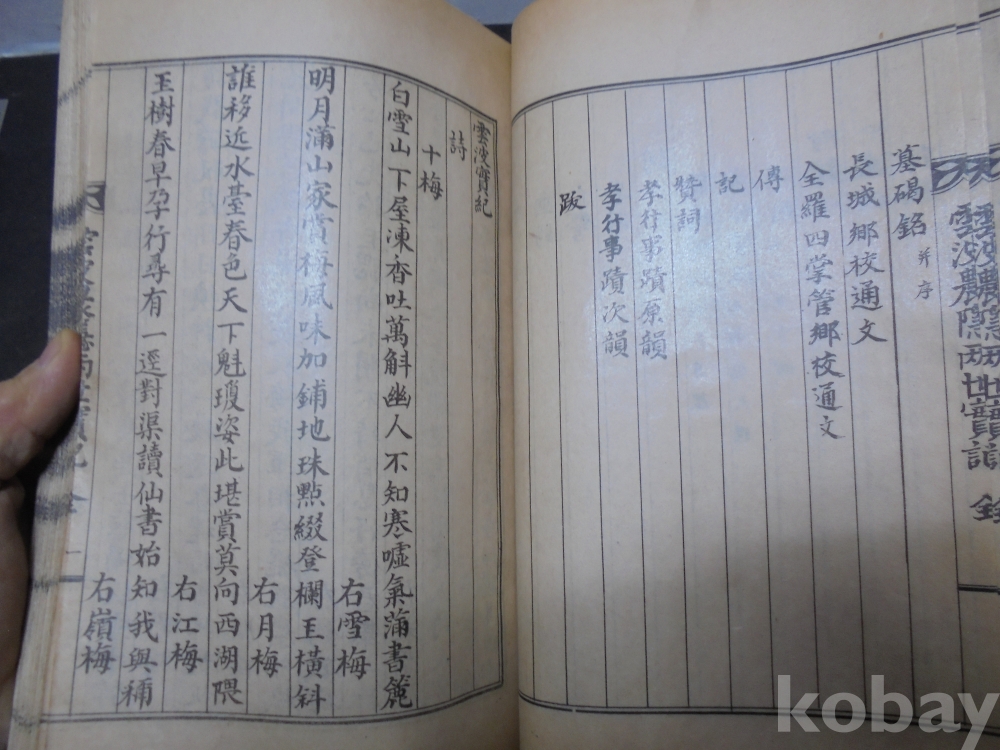 墓碣銘 并序
長城鄉校通文
全羅四掌管鄉校通文
傳
記
贊詞
孝行事蹟原韻
孝行事蹟次韻
跋
雲波實紀
詩
十梅
白雪山下屋凍香吐萬斛幽人不知寒噓氣滿書簏
右雪梅
明月滿山家賞梅風味加鋪地珠點綴登欄玉橫斜
右月梅
誰移近水臺春色天下魁瓊姿此堪賞莫向西湖隈
右江梅
玉樹春早孕行尋有一逕對渠讀仙書始知我興稱
右嶺梅
kobay